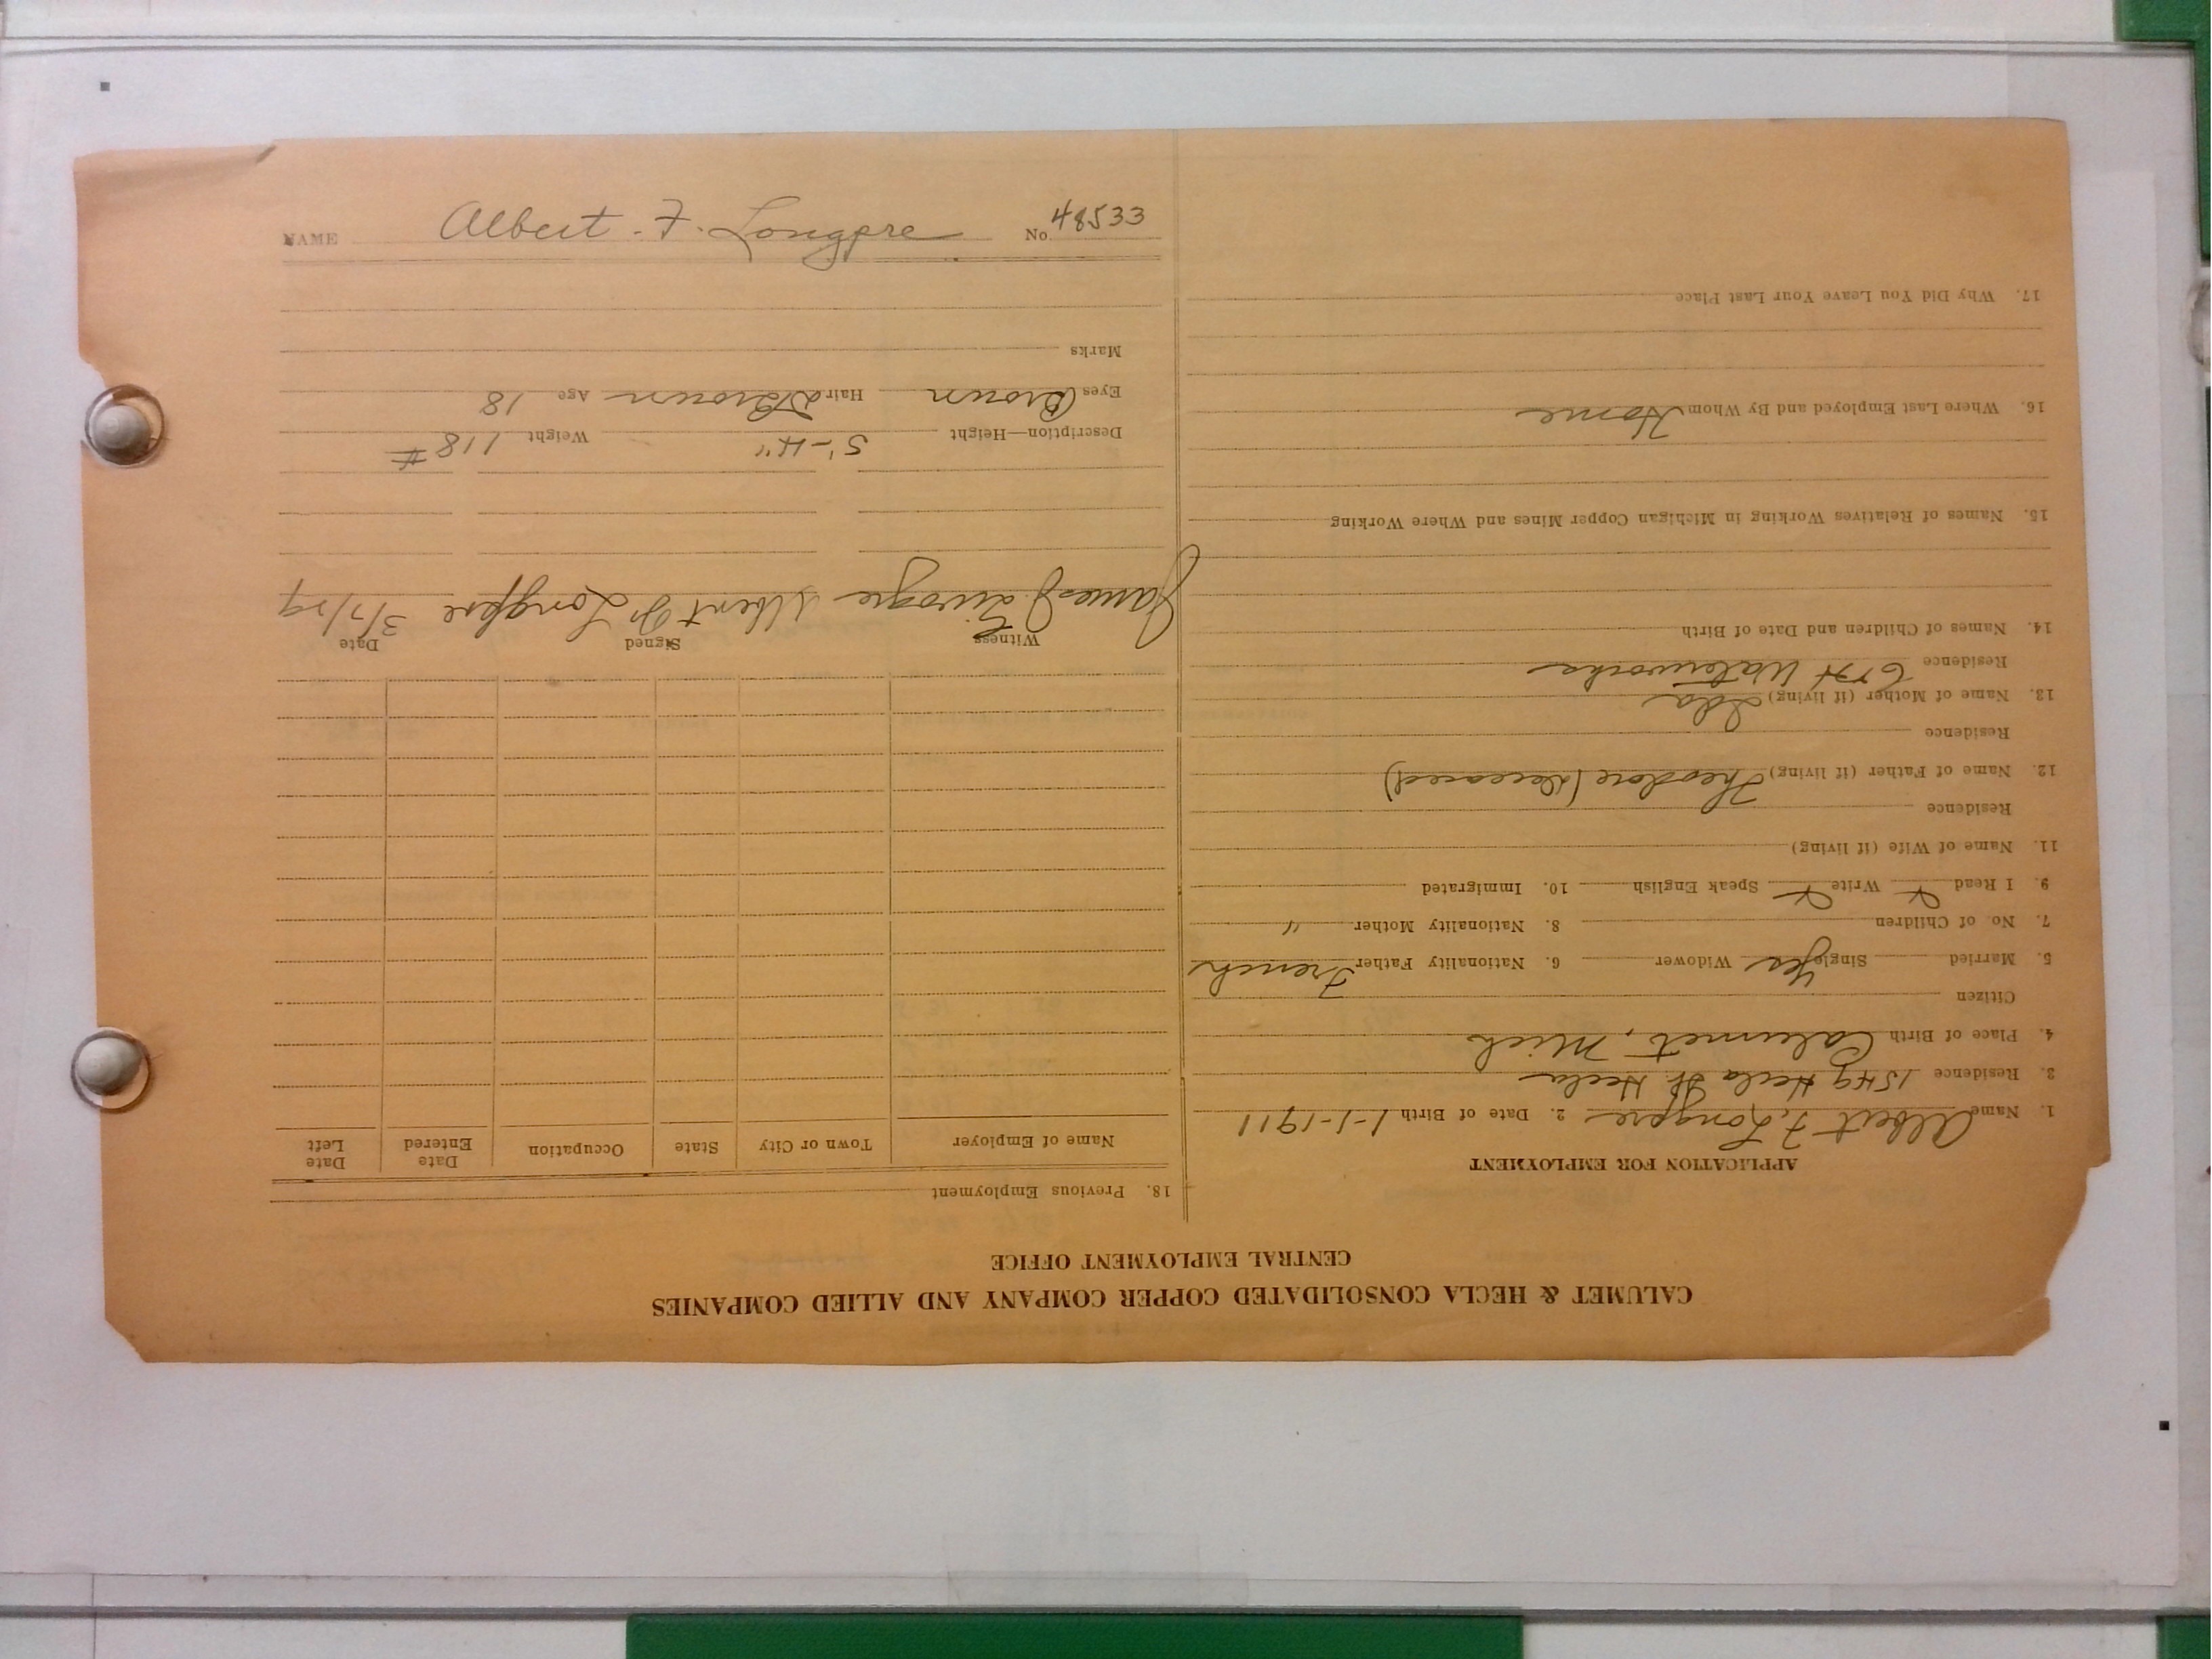 NAME Albert F. Longpre No. 48533
CALUMET & HECLA CONSOLIDATED COPPER COMPANY AND ALLIED COMPANIES
CENTRAL EMPLOYMENT OFFICE
APPLICATION FOR EMPLOYMENT
1. Name Albert F. Longpre 2. Date of Birth 1-1-1911
3. Residence 1549 Hecla St. Hecla
4. Place of Birth Calumet, Mich
Citizen
5. Married Single Yes Widower 6. Nationality Father French
7. No. of Children 8. Nationality Mother "
9. I Read Write Speak English 10. Immigrated
11. Name of Wife (if living)
Residence
12. Name of Father (if living) Theodore (Deceased)
Residence
13. Name of Mother (if living) Ida
Residence Waterworks
14. Names of Children and Date of Birth
15. Names of Relatives Working in Michigan Copper Mines and Where Working
16. Where Last Employed and By Whom Home
17. Why Did You Leave Your Last Place
18. Previous Employment
Name of Employer Town or City State Occupation Date Entered Date Left
Witness Signed Date
James Albert F. Longpre 3/7/29
Description—Height 5'-4" Weight 118 #
Eyes Brown Hair D Brown Age 18
Marks